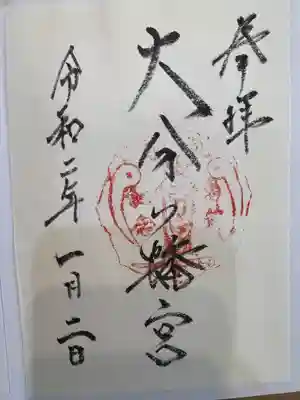 奉拝
大分八幡宮
令和二年一月二日